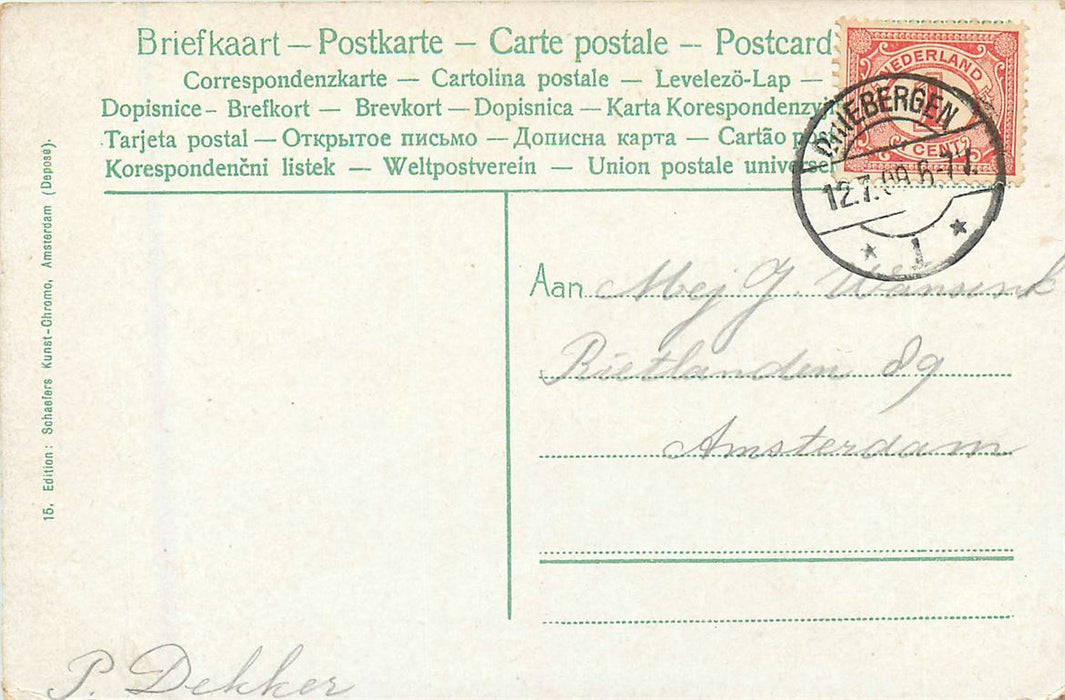 Briefkaart — Postkarte — Carte postale — Postcard
Correspondenzkarte — Cartolina postale — Levelezö-Lap —
Dopisnice - Brefkort — Brevkort — Dopisnica — Karta Korespondenzyj
Tarjeta postal — Открытое письмо — Дописна карта — Cartão p
Korespondenční listek — Weltpostverein — Union postale universe
NEDERLAND
CENT
DRIEBERGEN
12.7.09.6-7V.
1
Aan Mej J. Wansink
Rietlanden 89
Amsterdam
15. Edition: Schaefers Kunst-Chromo, Amsterdam (Depose).
P. Dekker